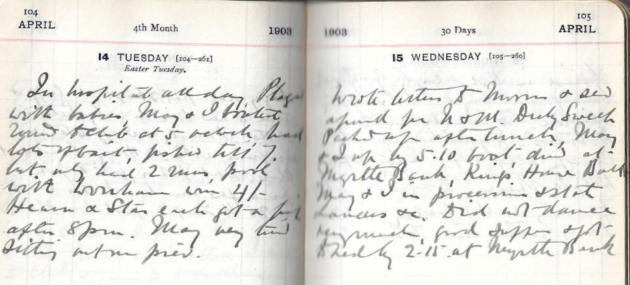 104
APRIL
4th Month
1903
14 TUESDAY [104—261]
Easter Tuesday.
In hospital all day. Played
with babies, May & I
round & Club at 5 o'clock had
lots of bait, fished till 7.
but only had 2 runs, pool
with won 4/-
Hearn & Star each got a
after 8 p.m. May very tired
sitting out on pier.
1903
30 Days
105
APRIL
15 WEDNESDAY [105—260]
Wrote letters to & sew
for
Packed up after lunch, May
& I up by 5.10 boat, din'd at
Myrtle Bank, King's House Ball
May & I in procession & state
Lancers &c. Did not dance
very much, good supper & got
to bed by 2.15 at Myrtle Bank